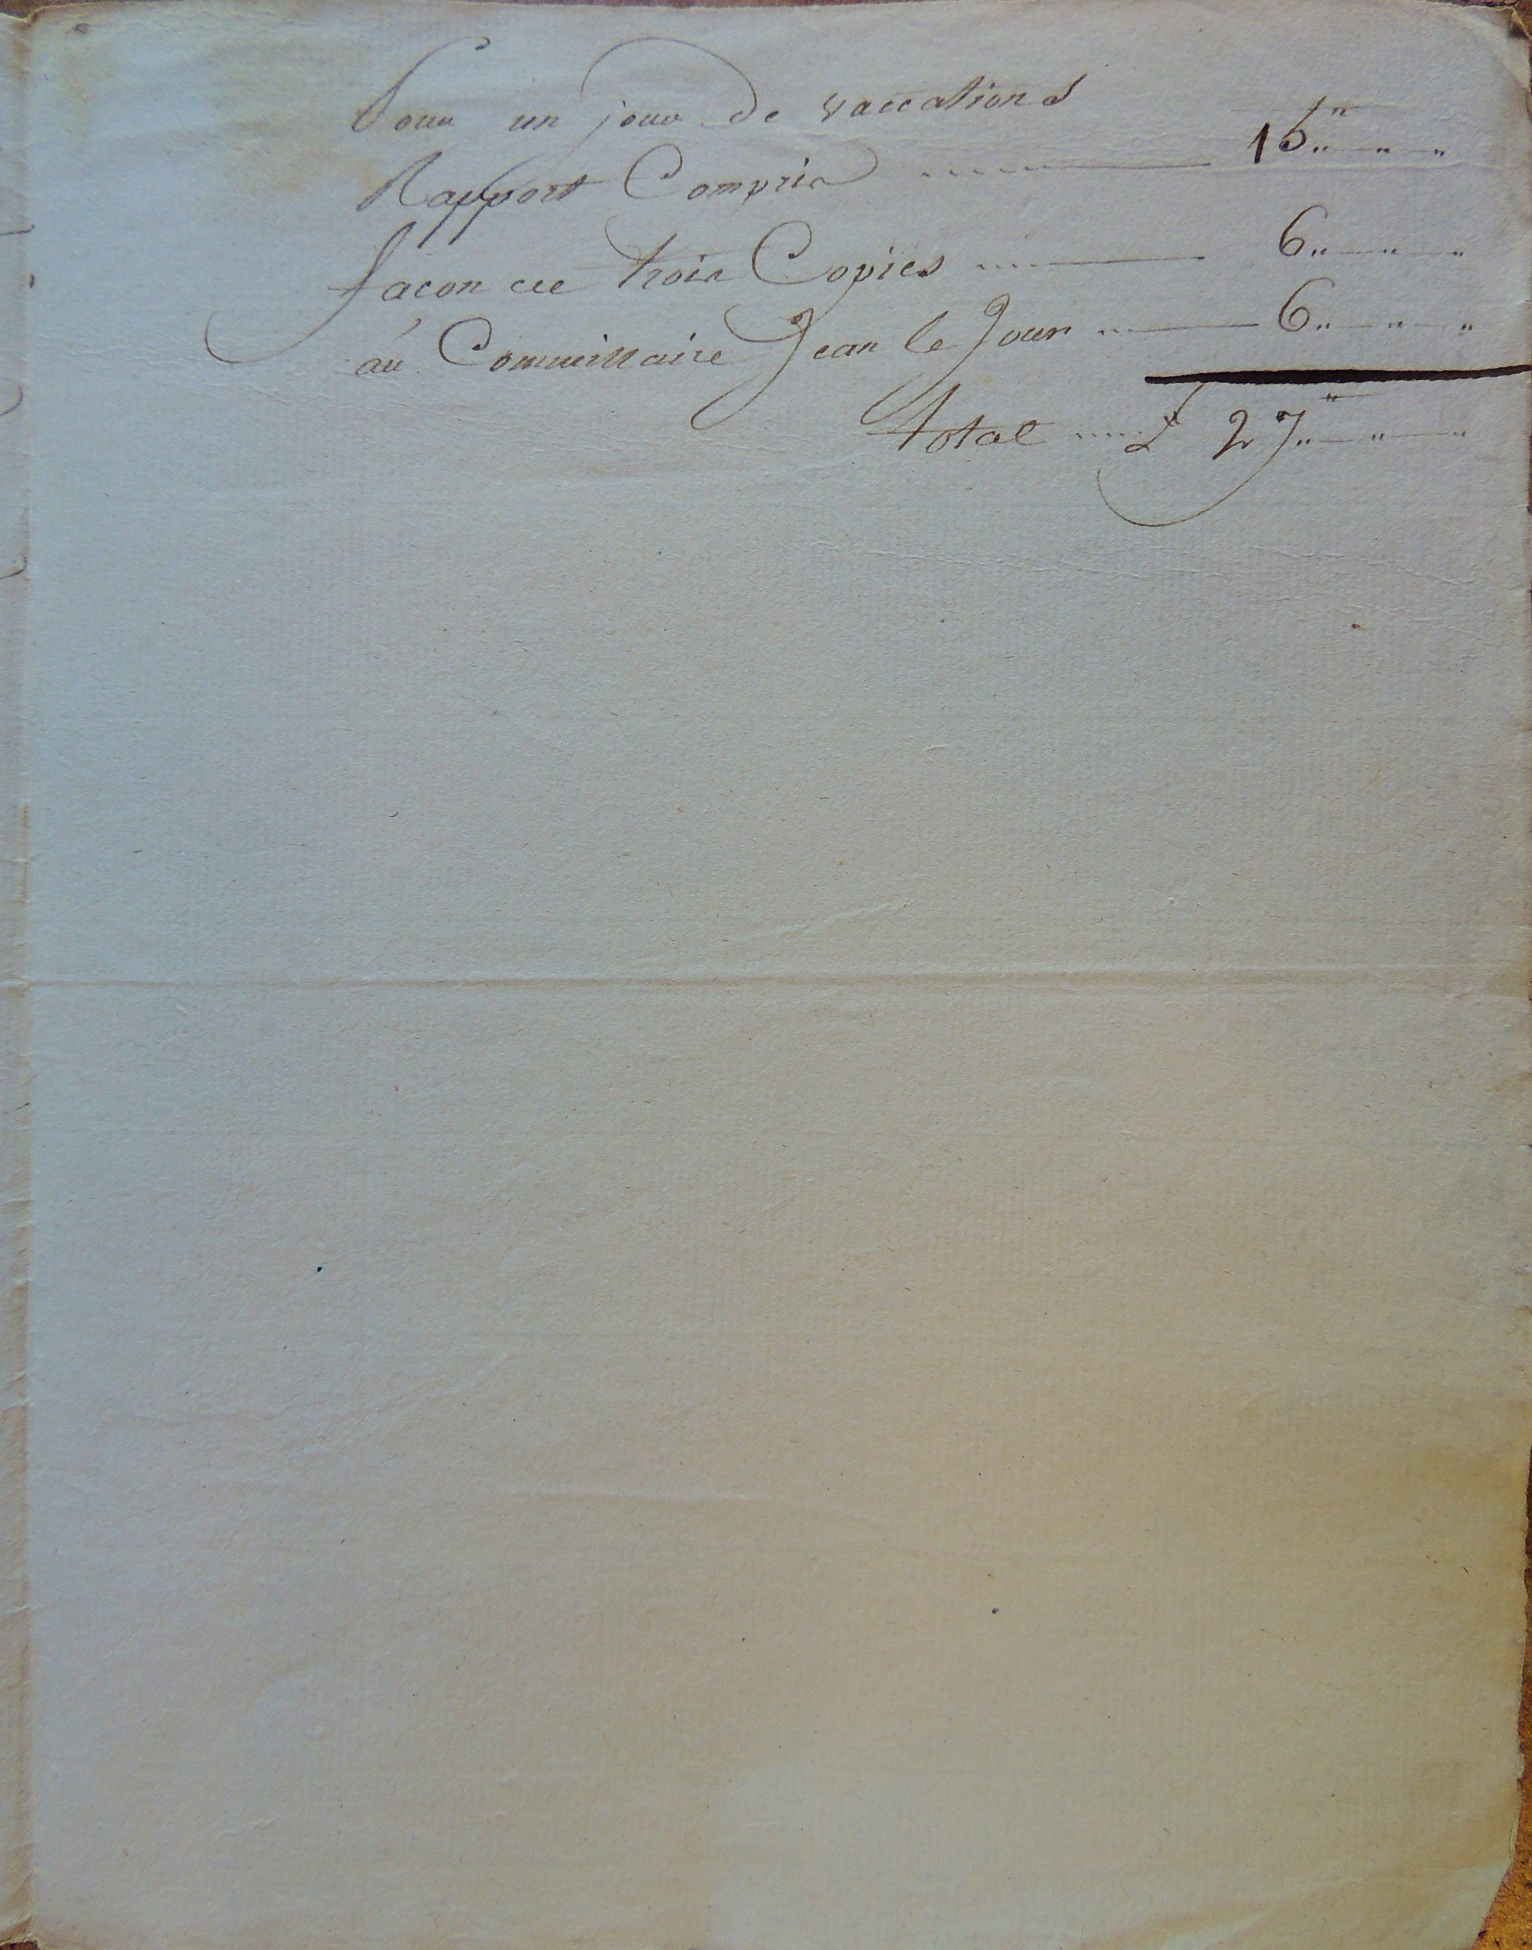 Pour un jour de vaccations
Rapport Compris ........ 15 " " "
façon de trois Copies ........ 6 " " "
au Commissaire Jean le Jour ........ 6 " " "
total ..... £ 27 " " "